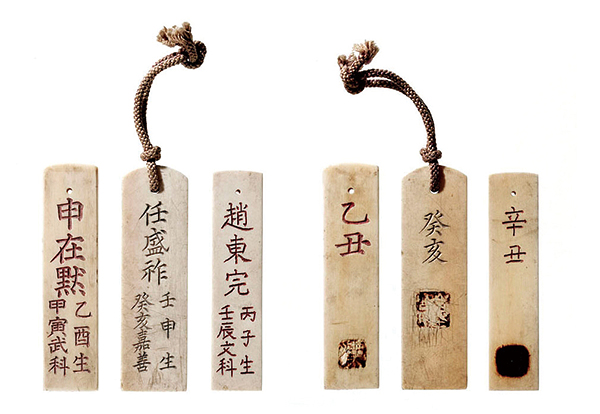 申在黙
乙酉生
甲寅武科
任盛祚
壬申生
癸亥嘉善
趙東完
丙子生
壬辰文科
乙丑
癸亥
辛丑